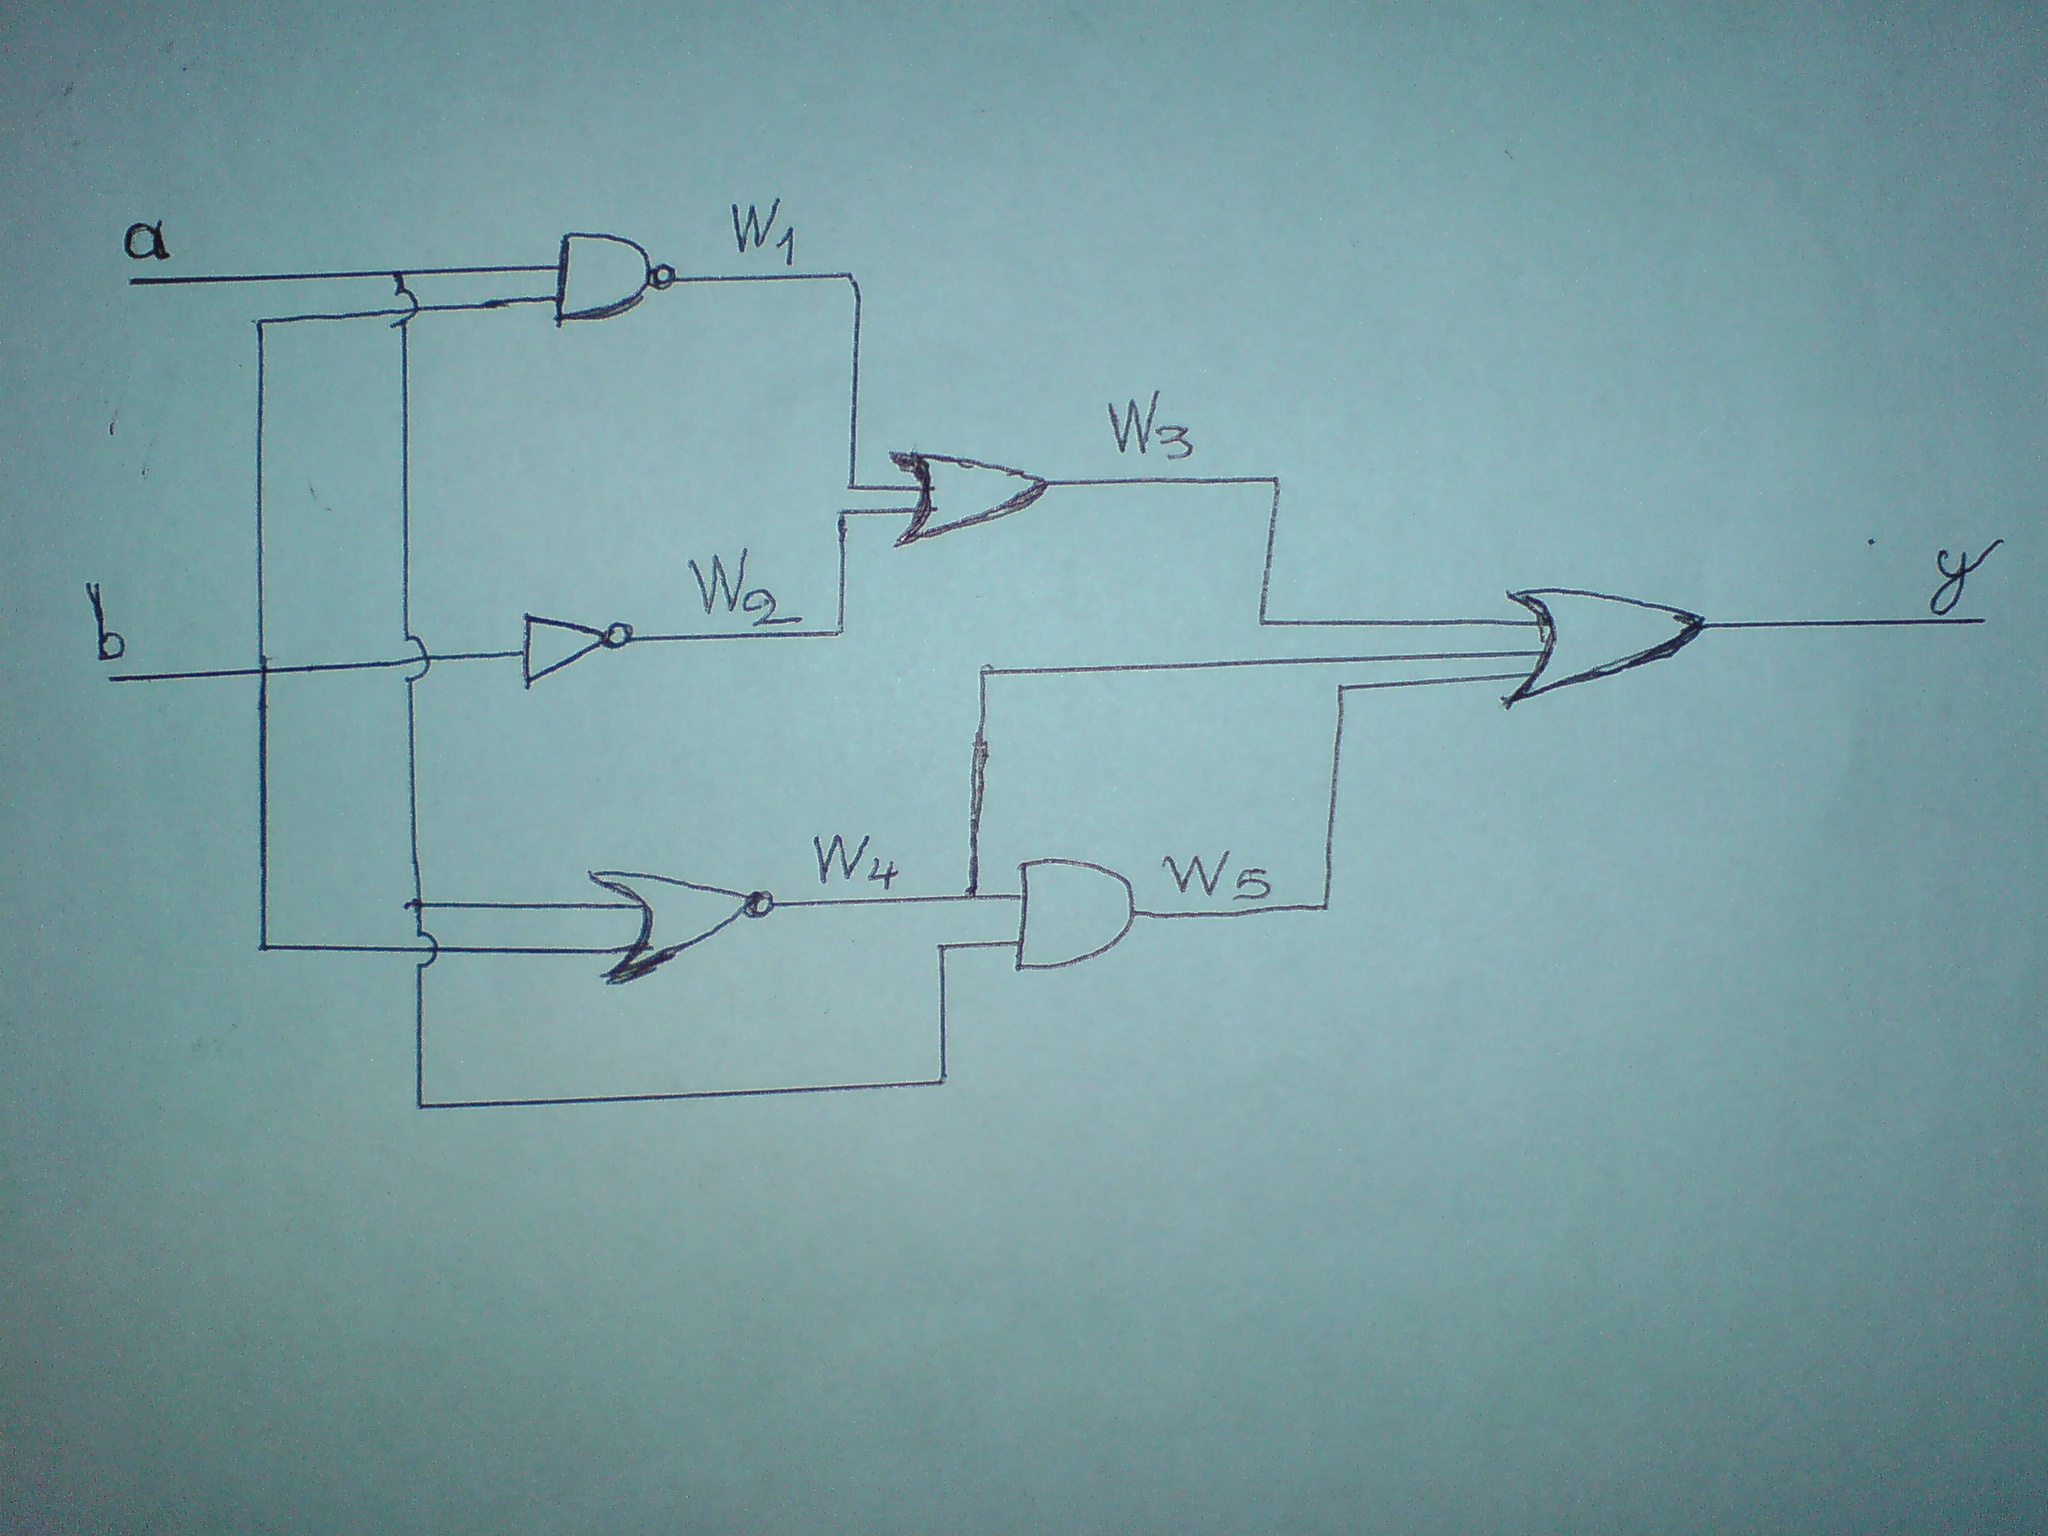 a
W1
W3
b
W2
y
W4
W5